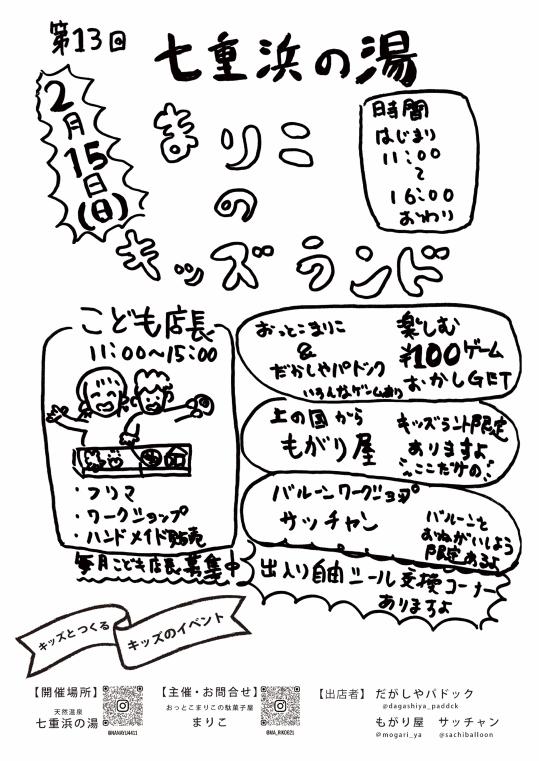 第13回
七重浜の湯
2月15日(日)
まりこ
の
キッズランド
時間
はじまり
11:00
〜
16:00
おわり
こども店長
11:00〜15:00
・フリマ
・ワークショップ
・ハンドメイド販売
毎月こども店長募集中
おっとこまりこ
&
だがしやパドック
いろんなゲームあり
楽しむ
¥100ゲーム
おかしGET
上の国から
もがり屋
キッズランド限定
ありますよ
ここだけの
バルーンワークショップ
サッチャン
バルーンと
おねがいしよう
限定あるよ
出入り自由シール交換コーナー
ありますよ
キッズとつくる キッズのイベント
【開催場所】
天然温泉
七重浜の湯
@NANAYU4411
【主催・お問合せ】
おっとこまりこの駄菓子屋
まりこ
@MA_RIKO621
【出店者】 だがしやパドック
@dagashiya_paddck
もがり屋 サッチャン
@mogari_ya @sachiballoon